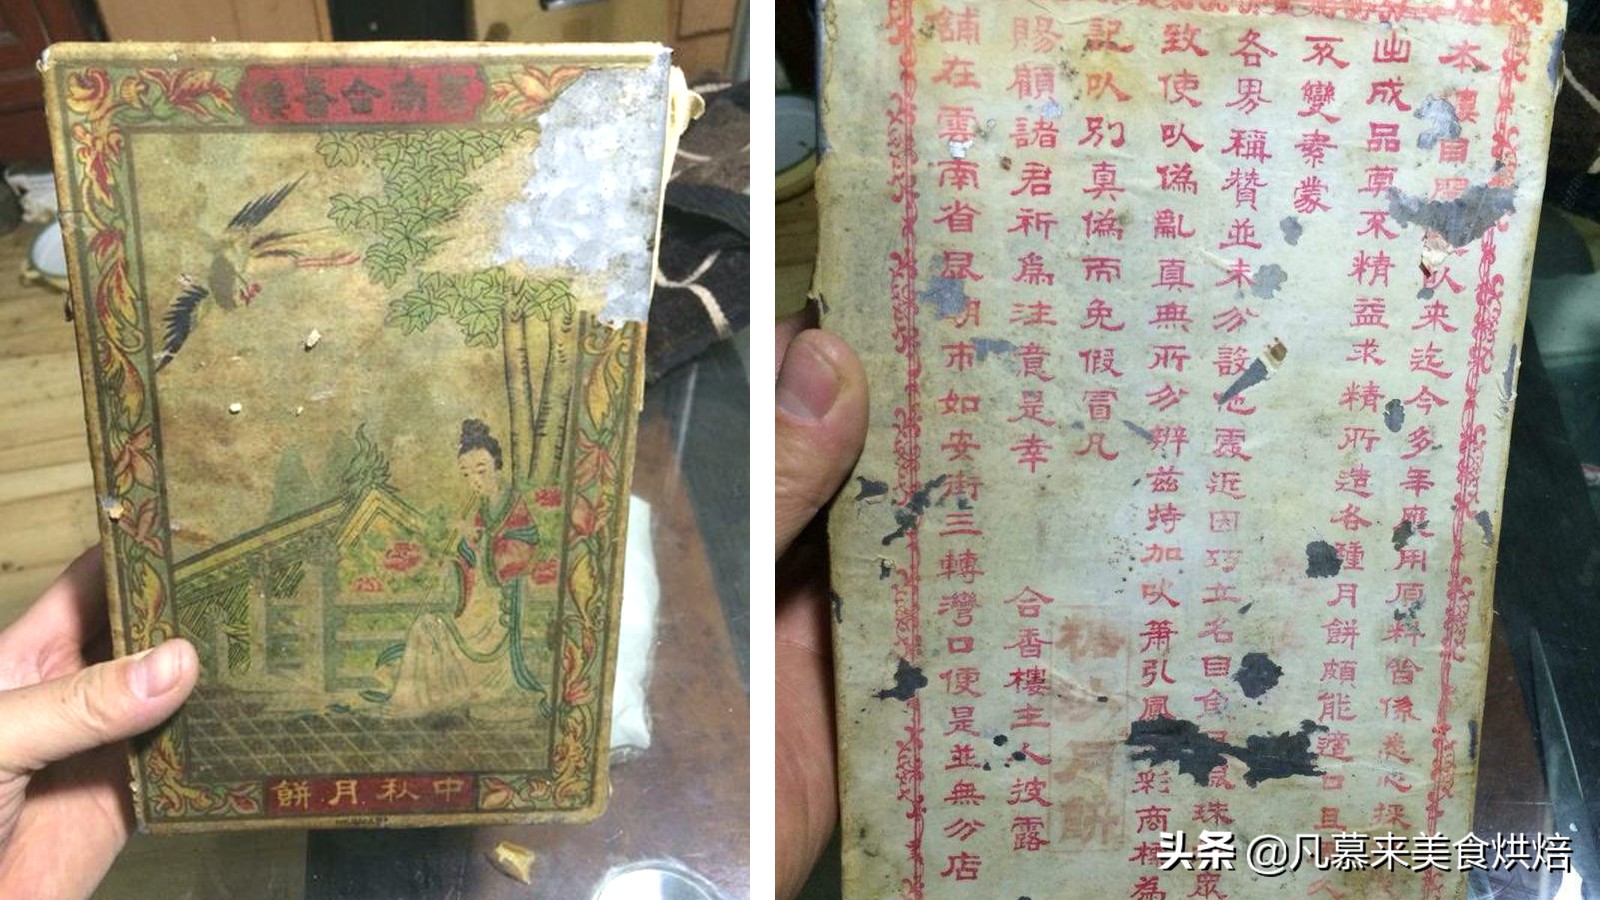 雲南合香樓
中秋月餅
本樓自以来迄今多年應用原料皆係悉心採
出成品尊來精益求精所造各種月餅頗能適口且久
不變素蒙
各界稱贊並未分設他處近因巧立名目魚目混珠眾
致使以偽亂真無所分辨茲特加以簫引鳳彩商標為
記以別真偽而免假冒凡
賜顧諸君祈為注意是幸
合香樓主人披露
舖在雲南省昆明市如安街三轉灣口便是並無分店
月餅
头条 @凡慕来美食烘焙